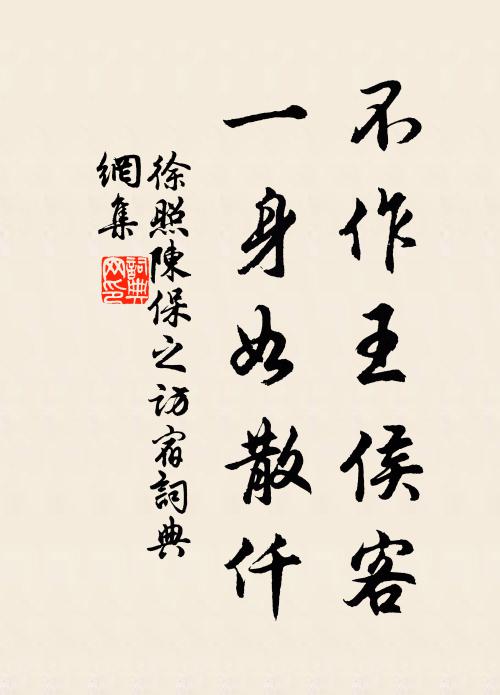 不作王侯客
一身如散仟
徐照陳保之訪宿詞典
網集
詞典網印